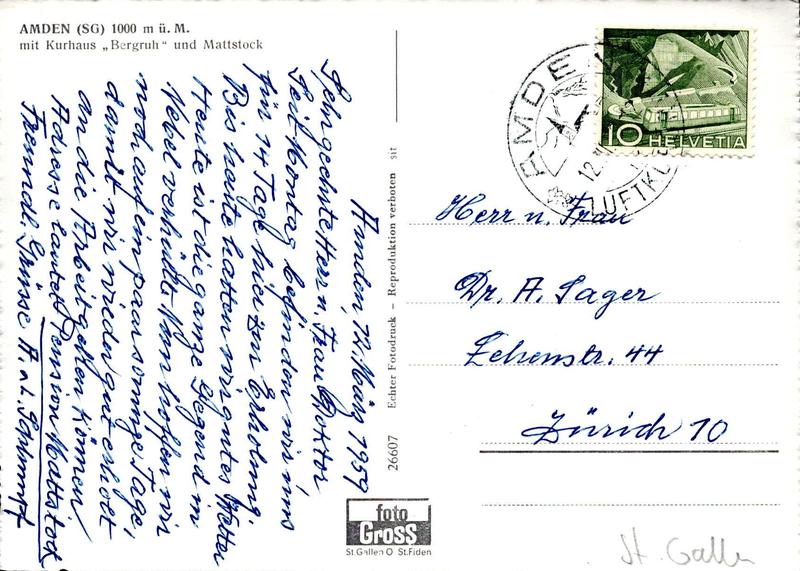 AMDEN (SG) 1000 m ü. M.
mit Kurhaus „Bergruh" und Mattstock
Amden, 12. März 1959
Sehr geehrte Herr u. Frau Doktor
Seit Montag befinden wir uns
für 14 Tage hier zur Erholung.
Bis heute hatten wir gutes Wetter
Heute ist die ganze Gegend in
Nebel verhüllt. Nun hoffen wir
noch auf ein paar sonnige Tage,
damit wir wieder gut erholt
an die Arbeit gehen können
Adresse lautet Pension Mattstock
Freundl. Grüsse A. u. L.
26607 Echter Fotodruck – Reproduktion verboten SIT
foto
Gross
St. Gallen O St. Fiden
AMDEN
12.
LUFTKU
10 HELVETIA
Herr u. Frau
Dr. A. Sager
Lehenstr. 44
Zürich 10
St. Gallen